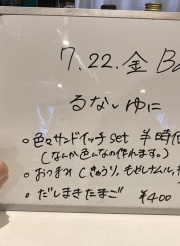 7.22.金 Ba
るないゆに
○色々サンドイッチ set ¥時価
(なんか色んなの作れます。)
○おつまみ (きゅうり、
○だしまきたまご ¥400